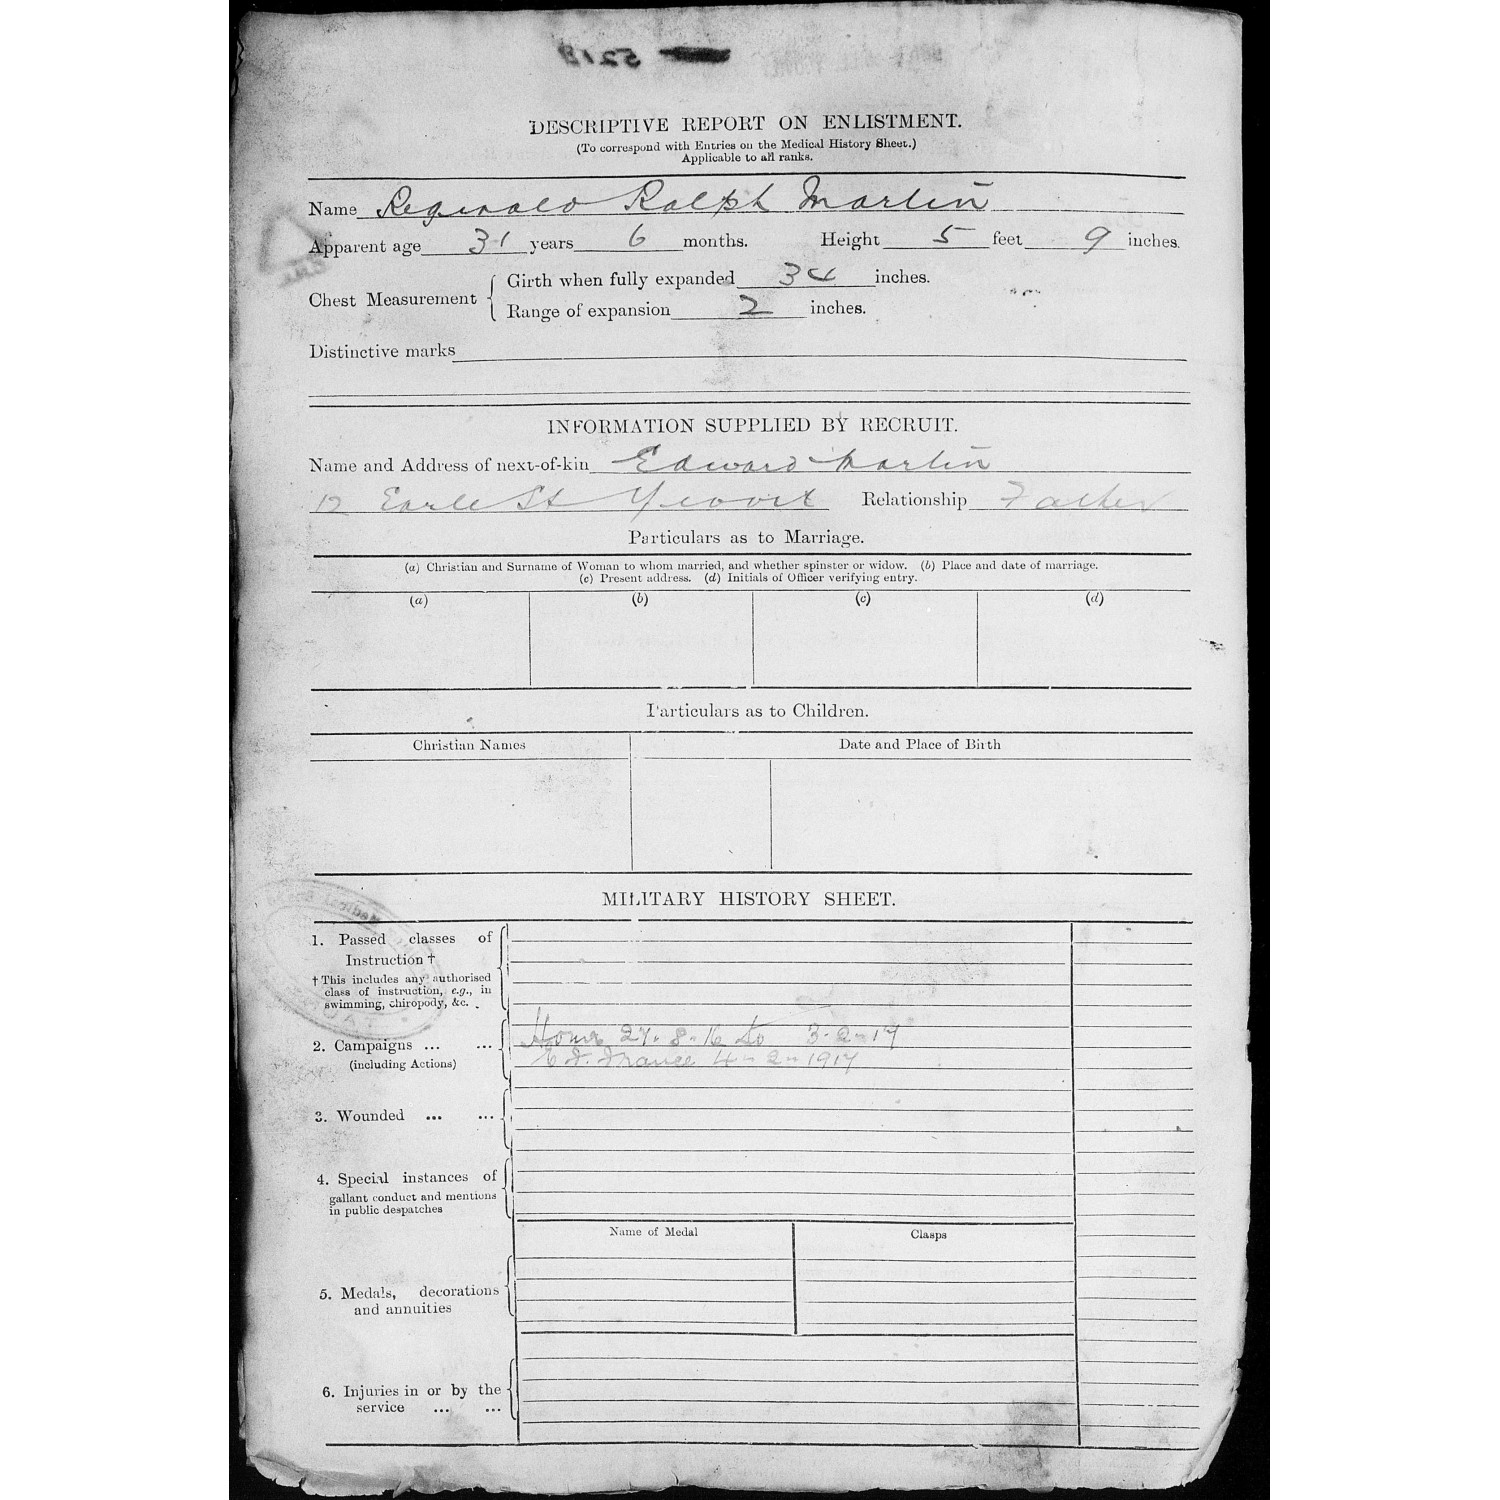 DESCRIPTIVE REPORT ON ENLISTMENT.
(To correspond with Entries on the Medical History Sheet.)
Applicable to all ranks.
Name Reginald Ralph Martin
Apparent age 31 years 6 months. Height 5 feet 9 inches.
Chest Measurement { Girth when fully expanded 34 inches.
Range of expansion 2 inches.
Distinctive marks
INFORMATION SUPPLIED BY RECRUIT.
Name and Address of next-of-kin Edward Martin
12 Earle St Relationship Father
Particulars as to Marriage.
(a) Christian and Surname of Woman to whom married, and whether spinster or widow. (b) Place and date of marriage.
(c) Present address. (d) Initials of Officer verifying entry.
(a) (b) (c) (d)
Particulars as to Children.
Christian Names Date and Place of Birth
MILITARY HISTORY SHEET.
1. Passed classes of
Instruction †
† This includes any authorised
class of instruction, e.g., in
swimming, chiropody, &c.
Home 27-8-16 to 3-2-17
2. Campaigns ... ...
France 4-2-1917
(including Actions)
3. Wounded ... ...
4. Special instances of
gallant conduct and mentions
in public despatches
Name of Medal Clasps
5. Medals, decorations
and annuities
6. Injuries in or by the
service ... ...